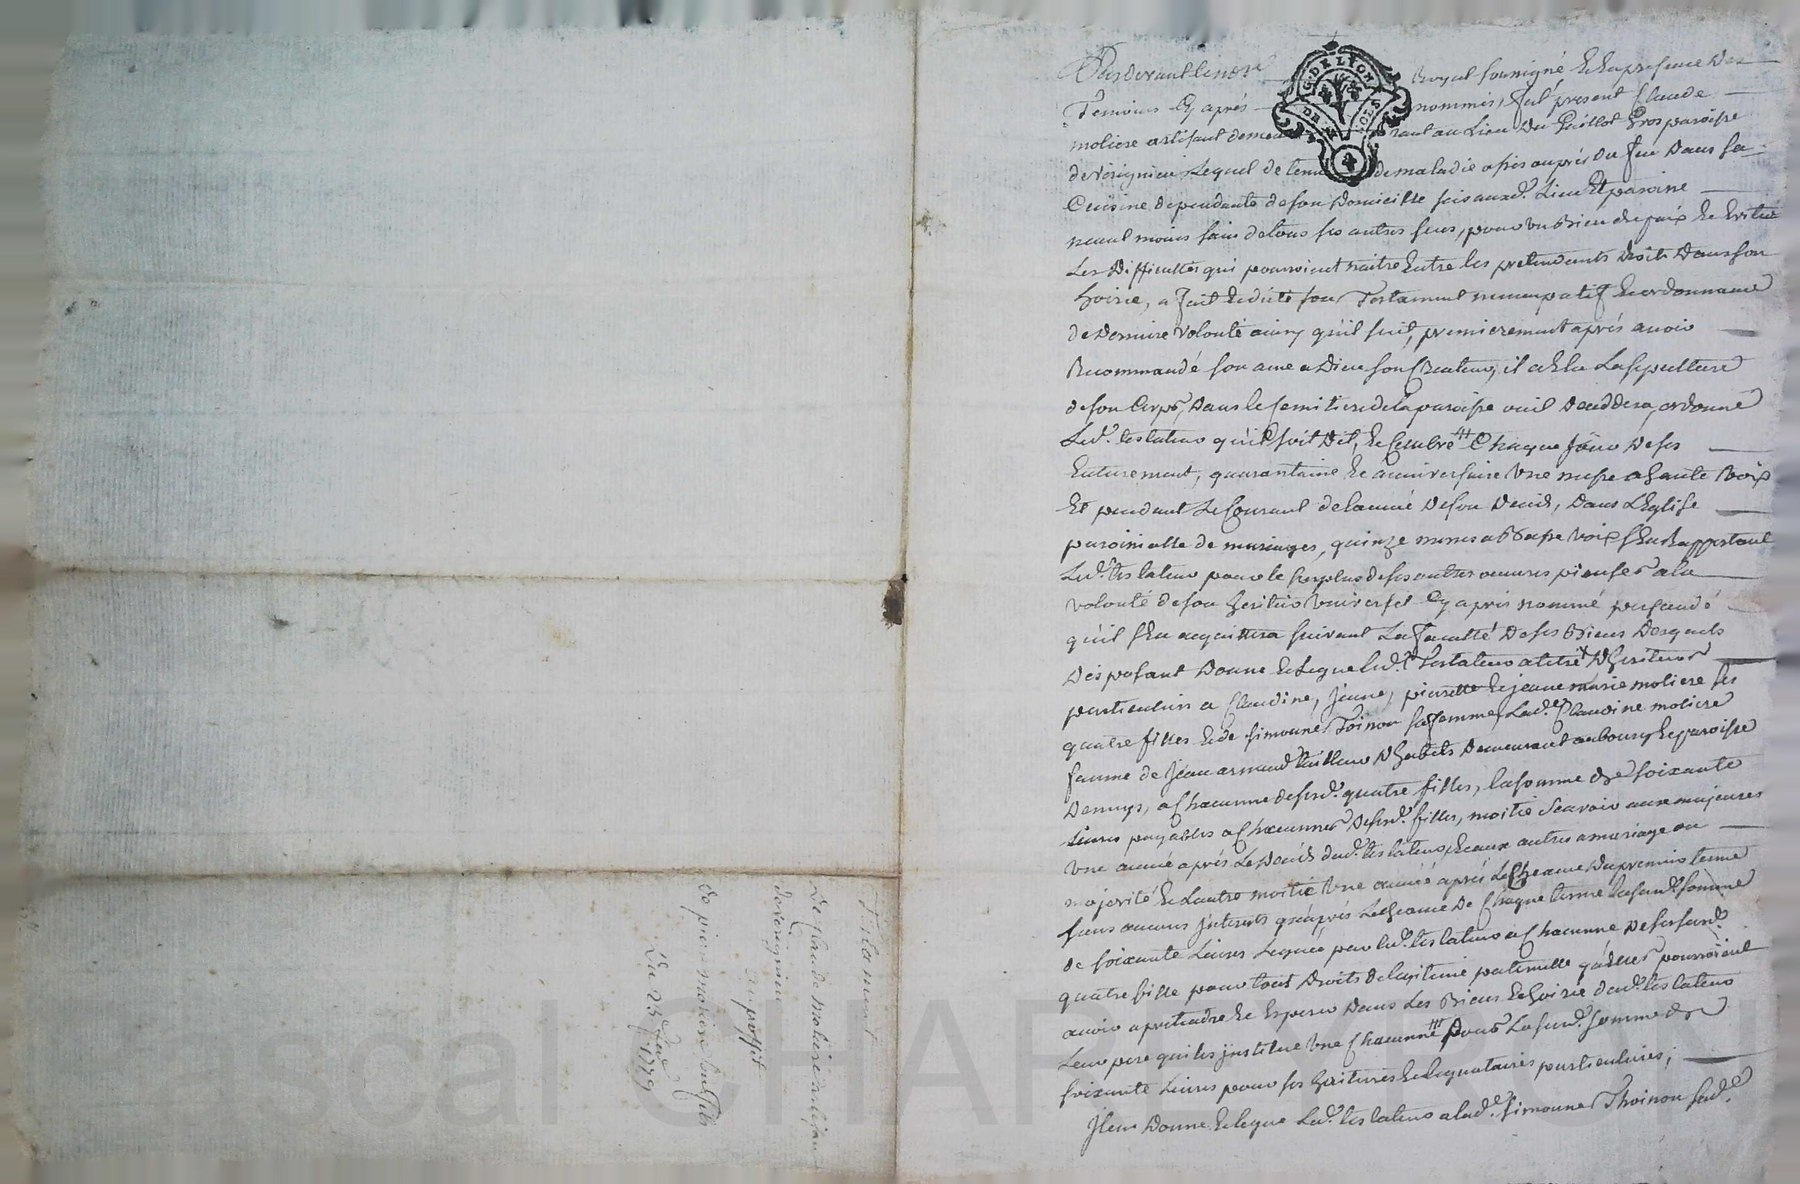 Pardevant le notre Royal soussigné Et En presence Des
Temoins Cy après nommés, fut present Claude
moliere artisant demeurant au Lieu Du Guillot Gros paroisse
de Vérignieu Lequel detenu de maladie assis auprés Du feu Dans sa
Cuisine dependante de son Domicille sis auxd. Lieu Et paroisse
neant moins sain de tous ses autres sens, pour un Bien de paix Et Eviter
Les Difficultés qui pourroient naitre Entre les pretendants droits Dans son
hoirie, a fait Et dicté son Testament nuncupatif Et ordonnance
de Derniere volonté ainsy qu'il suit, premierement après avoir
Recommandé son ame a Dieu son Createur, il a Elu La sepulture
de son Corps, Dans le Semitiere de la paroisse ou il Deceddera, ordonne
Led. testateur qu'il soit Dit, Et Celebré Chaque Jour De ses
Enterrement, quarantaine Et anniversaire Une messe a haute Voix
Et pendant Le Courant de l'année De son Decès, Dans L'Eglise
paroissialle de quinze messes a Basse Voix s'En Rapportant
Led. testateur pour le surplus de ses autres oeuvres pieuses a la
volonté de son heritier Universel Cy après nommé persuadé
qu'il s'En acquittera suivant La faculté De ses Biens Desquels
Disposant Donne Et Legue Led. Testateur a titre D'heritieres
particulieres a Claudine, Jeanne, pierrette Et jeanne marie moliere ses
quatre filles Et de simonne Toinon sa femme, Lad. Claudine moliere
femme de Jean armand tailleur D'habits Demeurant au bourg Et paroisse
a Chacunne de sesd. quatre filles, la somme De soixante
Livres payables a Chacunnes De sesd. filles, moitié Scavoir aux majeures
Une année après Le Decès dud. testateur, Et aux autres a mariage ou
majorité Et L'autre moitié Une année après L'Echeance Du premier terme
sans aucuns Interets qu'après L'Echeance De Chaque terme Lasusd. somme
de soixante Livres Leguée par Led. testateur a Chacunne De sesd.
quatre fille pour tous Droits de Legitime paternelle qu'elles pourroient
avoir a pretendre Et Esperer Dans Les Biens Et hoirie dud. testateur
Leur pere qui les institue Une Chacunne pour Lasusd. somme de
soixante Livres pour ses heritieres Et Legataires particulieres;
Item Donne Et Legue Led. testateur a lad. simonne Thoinon sad.
Testament
De Claude moliere artisan
de vérignieu
au proffit
de pierre moliere son fils
Du 25
1779